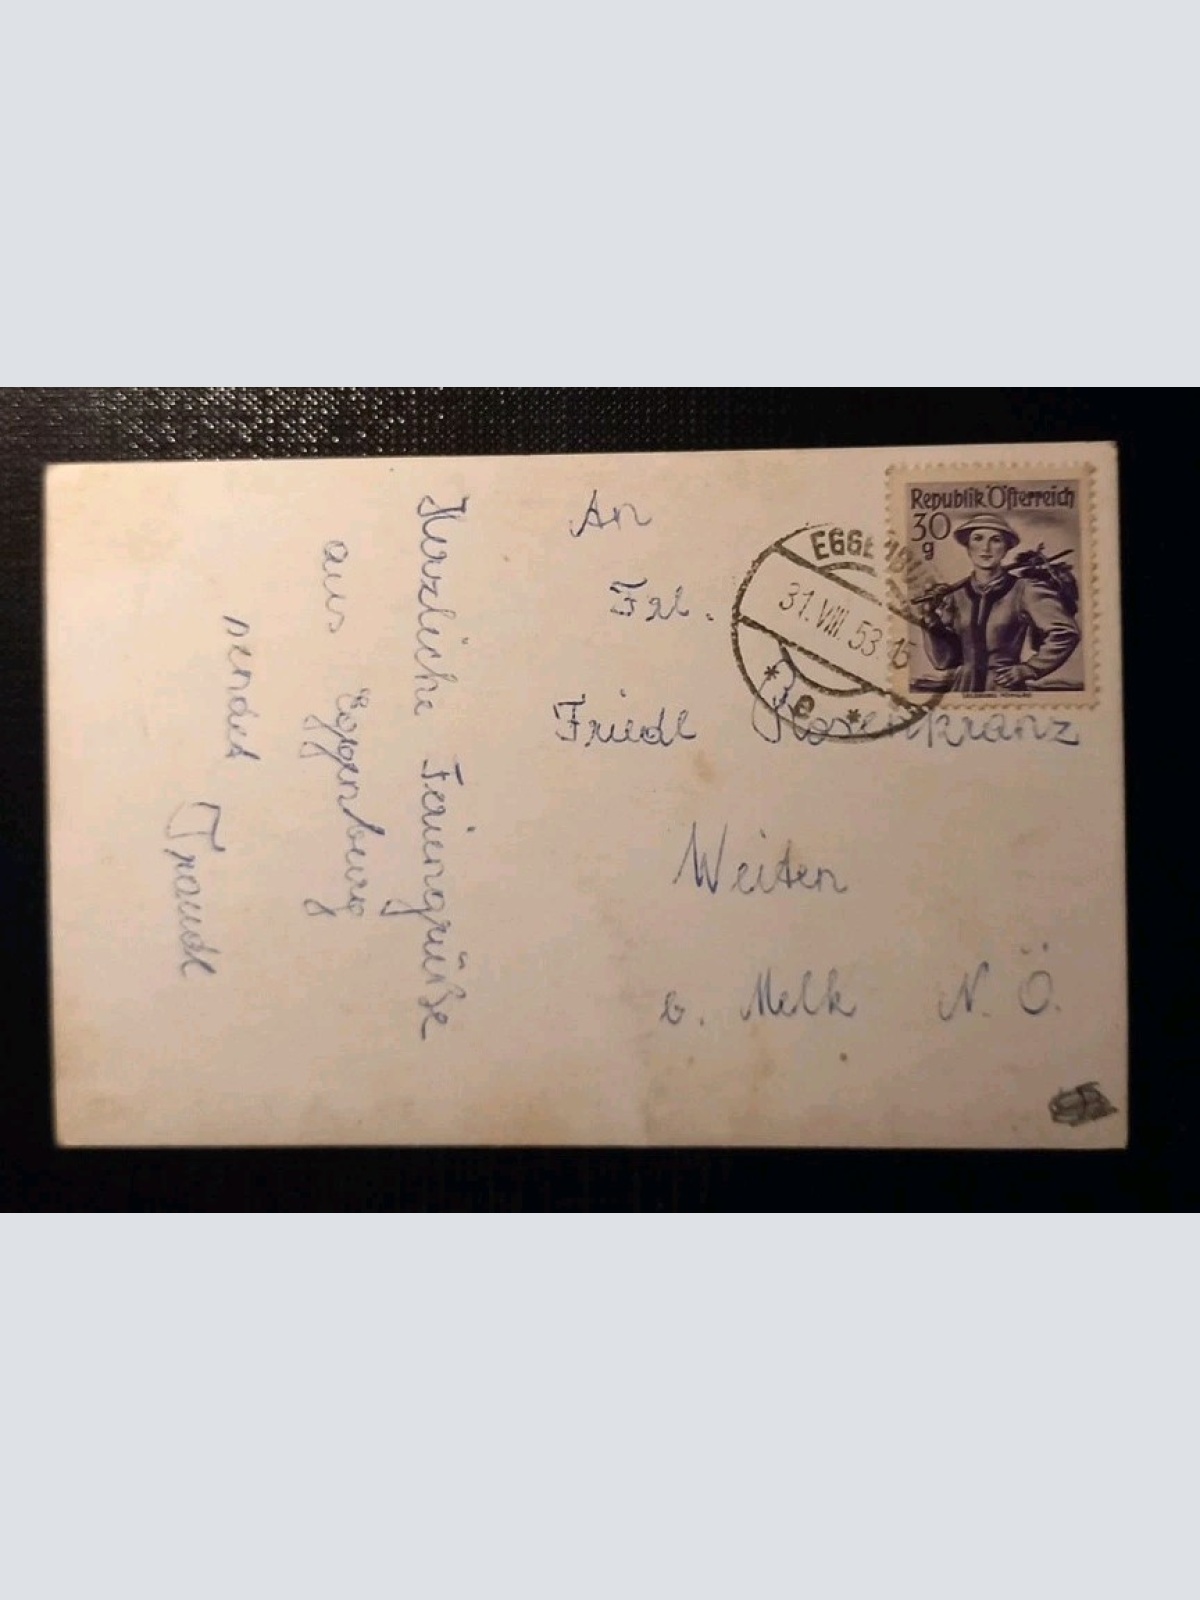 Herzliche Feriengrüße
aus Eggenburg
sendet
Traudl
An
Frl.
Friedl Rosenkranz
Weiten
b. Melk N. Ö.
Republik Österreich
30
g
EGGENBURG
31.VIII.53.15
* e *